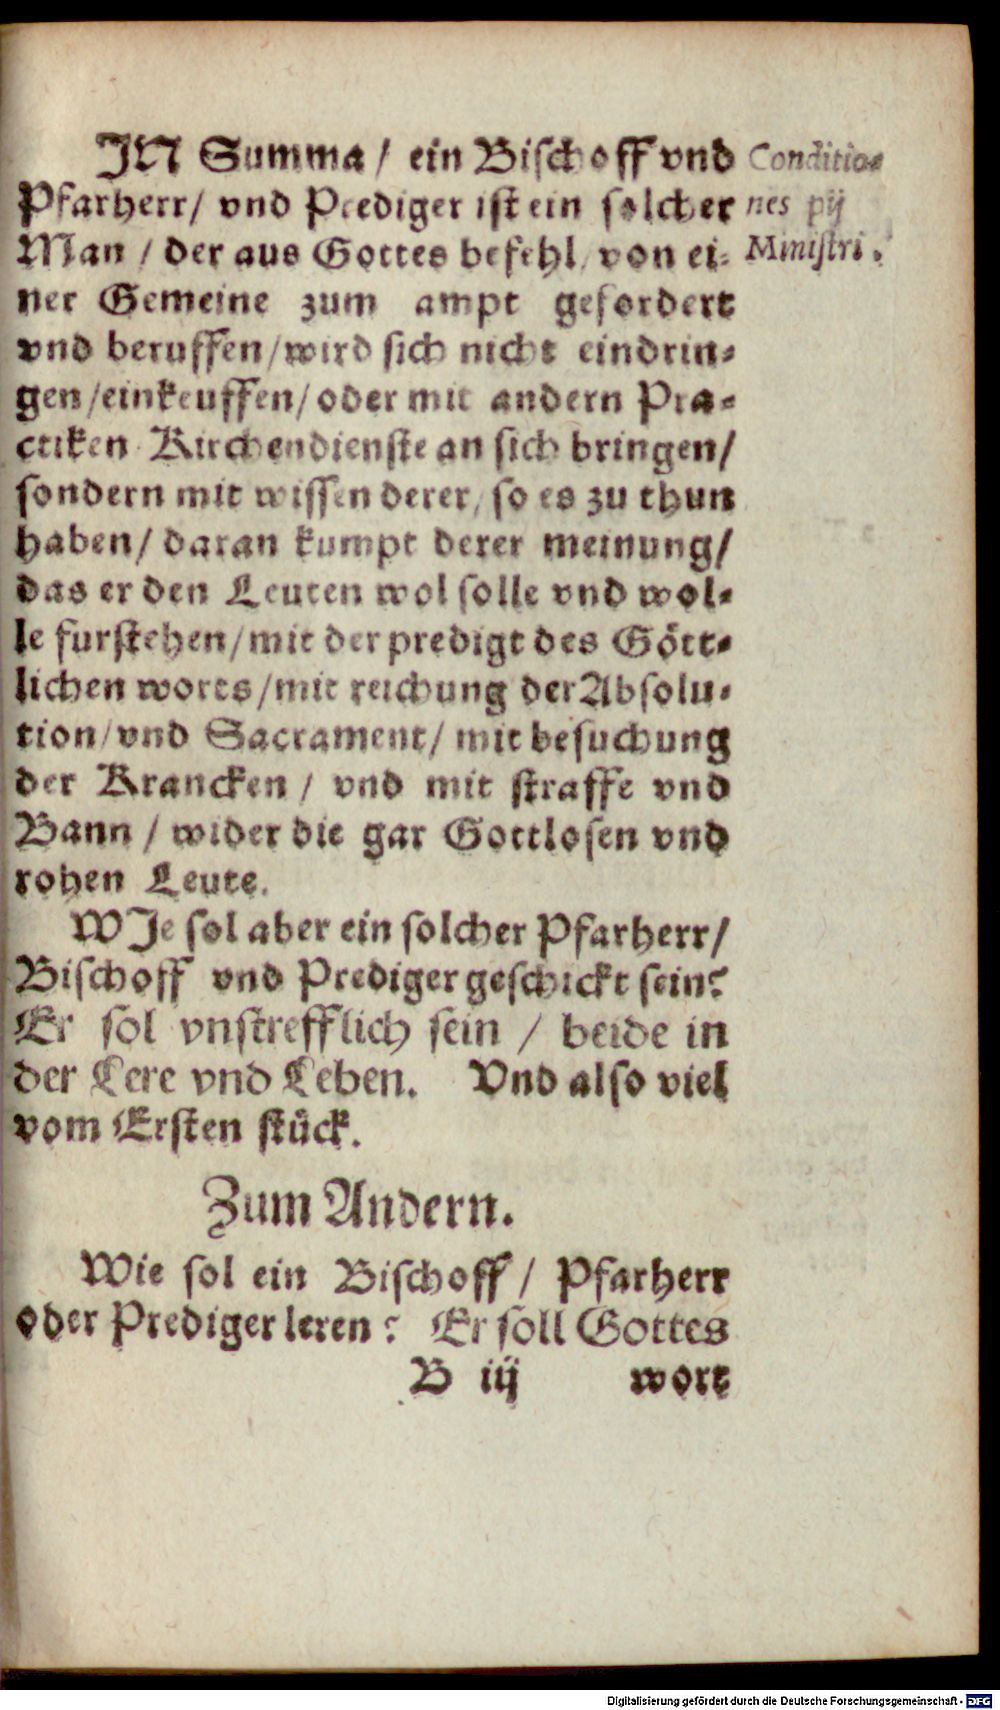 JN Summa / ein Bischoff vnd
Pfarherr / vnd Prediger ist ein solcher
Man / der aus Gottes befehl / von ei-
ner Gemeine zum ampt gefordert
vnd beruffen / wird sich nicht eindrin-
gen / einkeuffen / oder mit andern Pra-
cticken Kirchendienste an sich bringen /
sondern mit wissen derer / so es zu thun
haben / daran kumpt derer meinung /
das er den Leuten wol solle vnd wol-
le furstehen / mit der predigt des Gött-
lichen worts / mit reichung der Absolu-
tion / vnd Sacrament / mit besuchung
der Krancken / vnd mit straffe vnd
Bann / wider die gar Gottlosen vnd
rohen Leute.
Conditio-
nes pij
Ministri.
WJe sol aber ein solcher Pfarherr /
Bischoff vnd Prediger geschickt sein?
Er sol vnstrefflich sein / beide in
der Lere vnd Leben. Vnd also viel
vom Ersten stück.
Zum Andern.
Wie sol ein Bischoff / Pfarherr
oder Prediger leren? Er soll Gottes
B iij wort
Digitalisierung gefördert durch die Deutsche Forschungsgemeinschaft - DFG